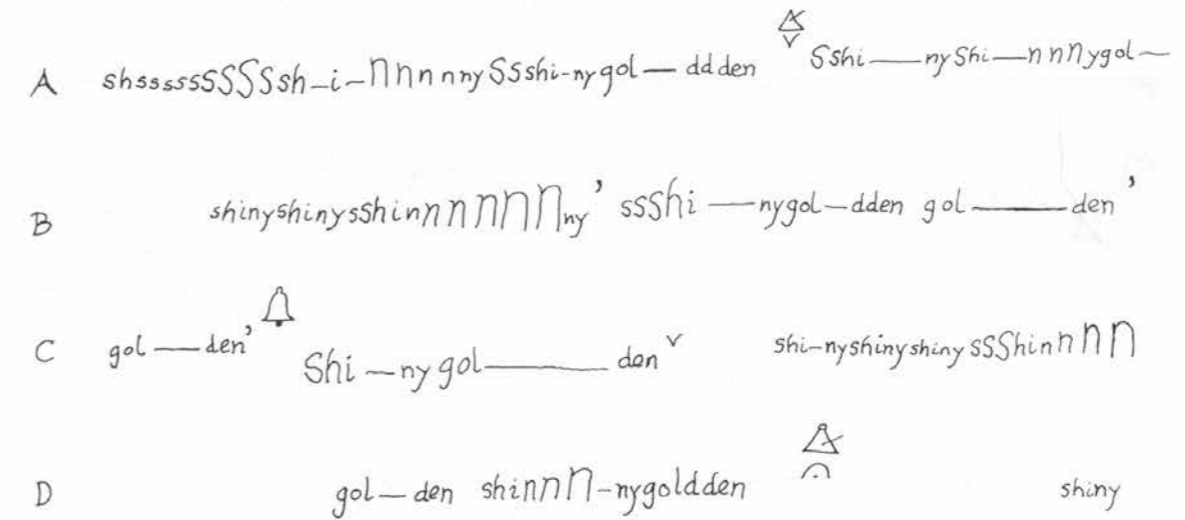 A shsssssSSSSsh–i–nnnnnySSshi-nygol—ddden Sshi—nyShi—nnnygol—
B shinyshinysshinnnnnnny’ sssShi—nygol—dden gol—den’
C gol—den’ Shi—nygol—den shi–nyshinyshinysSShinnnn
D gol—den shinnn–nygoldden shiny